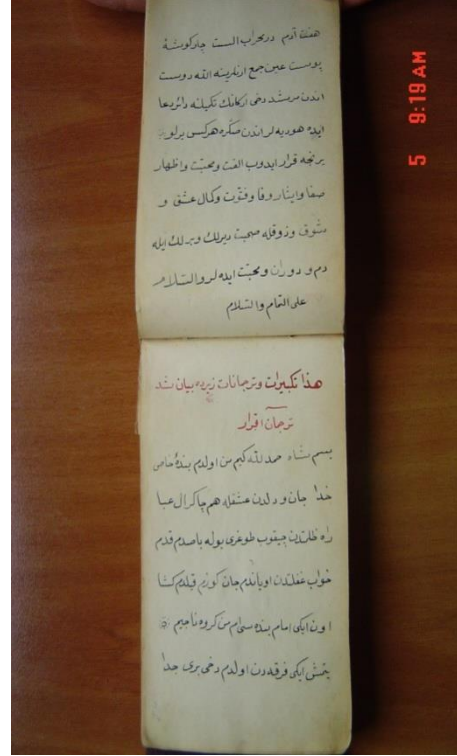 هفتم آدم در محراب الست چارکوشهٔ
پوست عین جمع ارنلرینه الله دوست
اندن مرشد دخی ارکانك تکبیلنه دائر دعا
ایده هودیه لر اندن صکره هرکس یرلو
یرنجه قرار ایدوب الفت و محبت و اظهار
صفا و ایثار وفا و فتوت و کمال عشق و
شوق و ذوقله صحبت دیرلك و برلك ایله
دم و دوران و محبت ایده لر والسلام
علی التمام والسلام
هذا تکبیرات و ترجمانات زیرده بیان شد
ترجمان اقرار
بسم شاه حمد لله کیم من اولدم بندهٔ خاص
خدا جان و دلدن عشقله هم چاکر ال عبا
راه ظلمتدن چیقوب طوغری یوله باصدم قدم
خواب غفلتدن اویاندم جان کوزم قیلدم کشا
اون ایکی امام بنده سی ام من کروه ناجیم
یتمش ایکی فرقه دن اولدم دخی بری جدا
5 9:19 AM